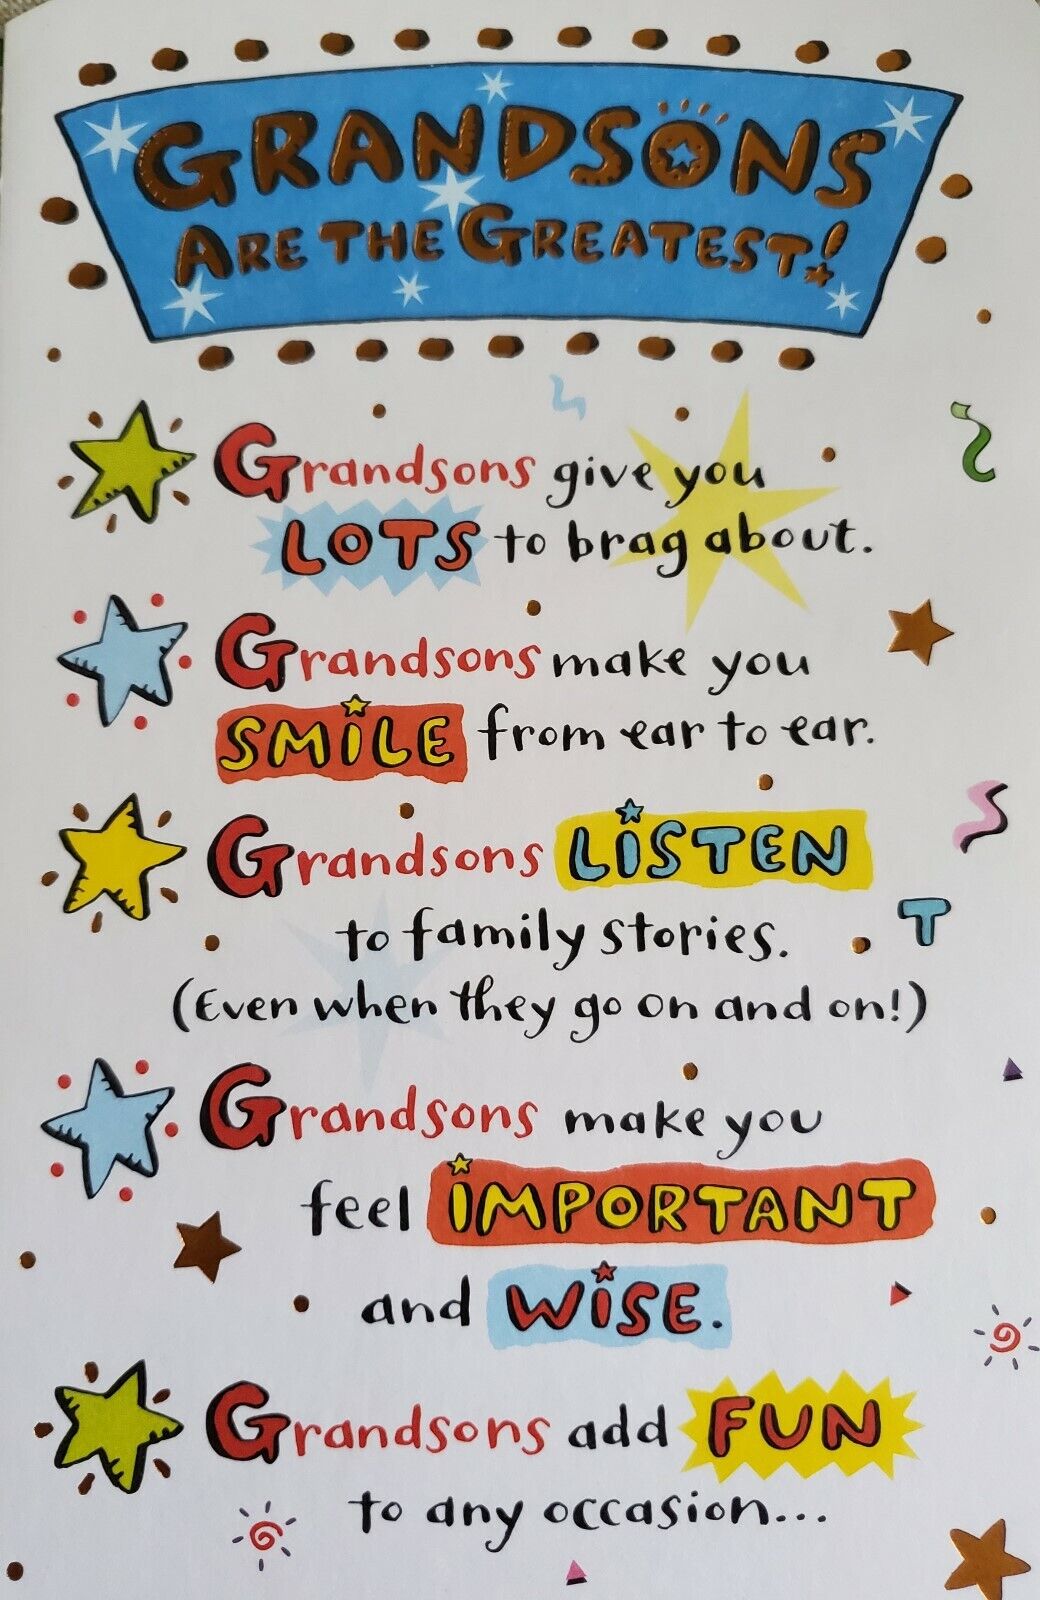 GRANDSONS
ARE THE GREATEST!
Grandsons give you
LOTS to brag about.
Grandsons make you
SMILE from ear to ear.
Grandsons LISTEN
to family stories.
(Even when they go on and on!)
Grandsons make you
feel IMPORTANT
and WISE.
Grandsons add FUN
to any occasion...